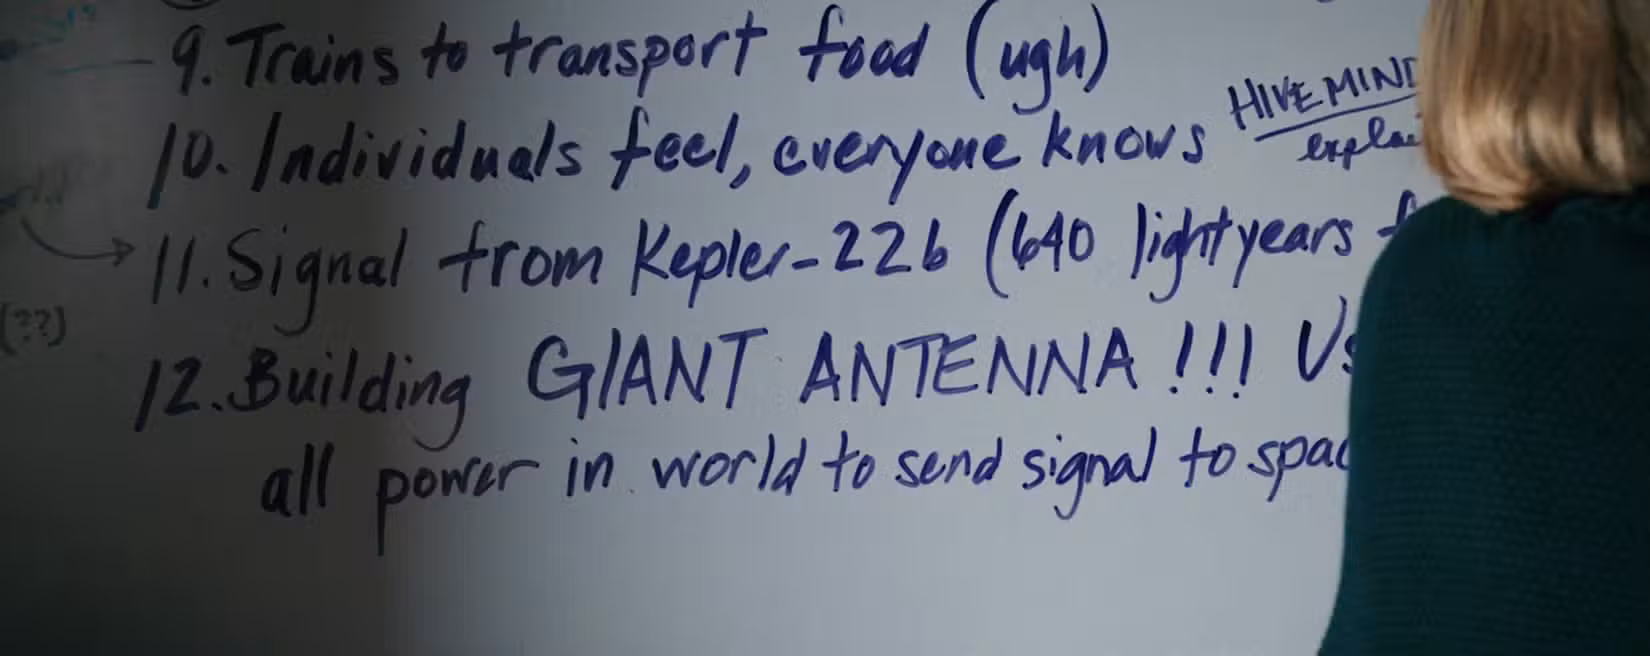 9. Trains to transport food (ugh)
10. Individuals feel, everyone knows
HIVE MIND
11. Signal from Kepler-22b (640 lightyears
(??)
12. Building GIANT ANTENNA!!!
all power in world to send signal to